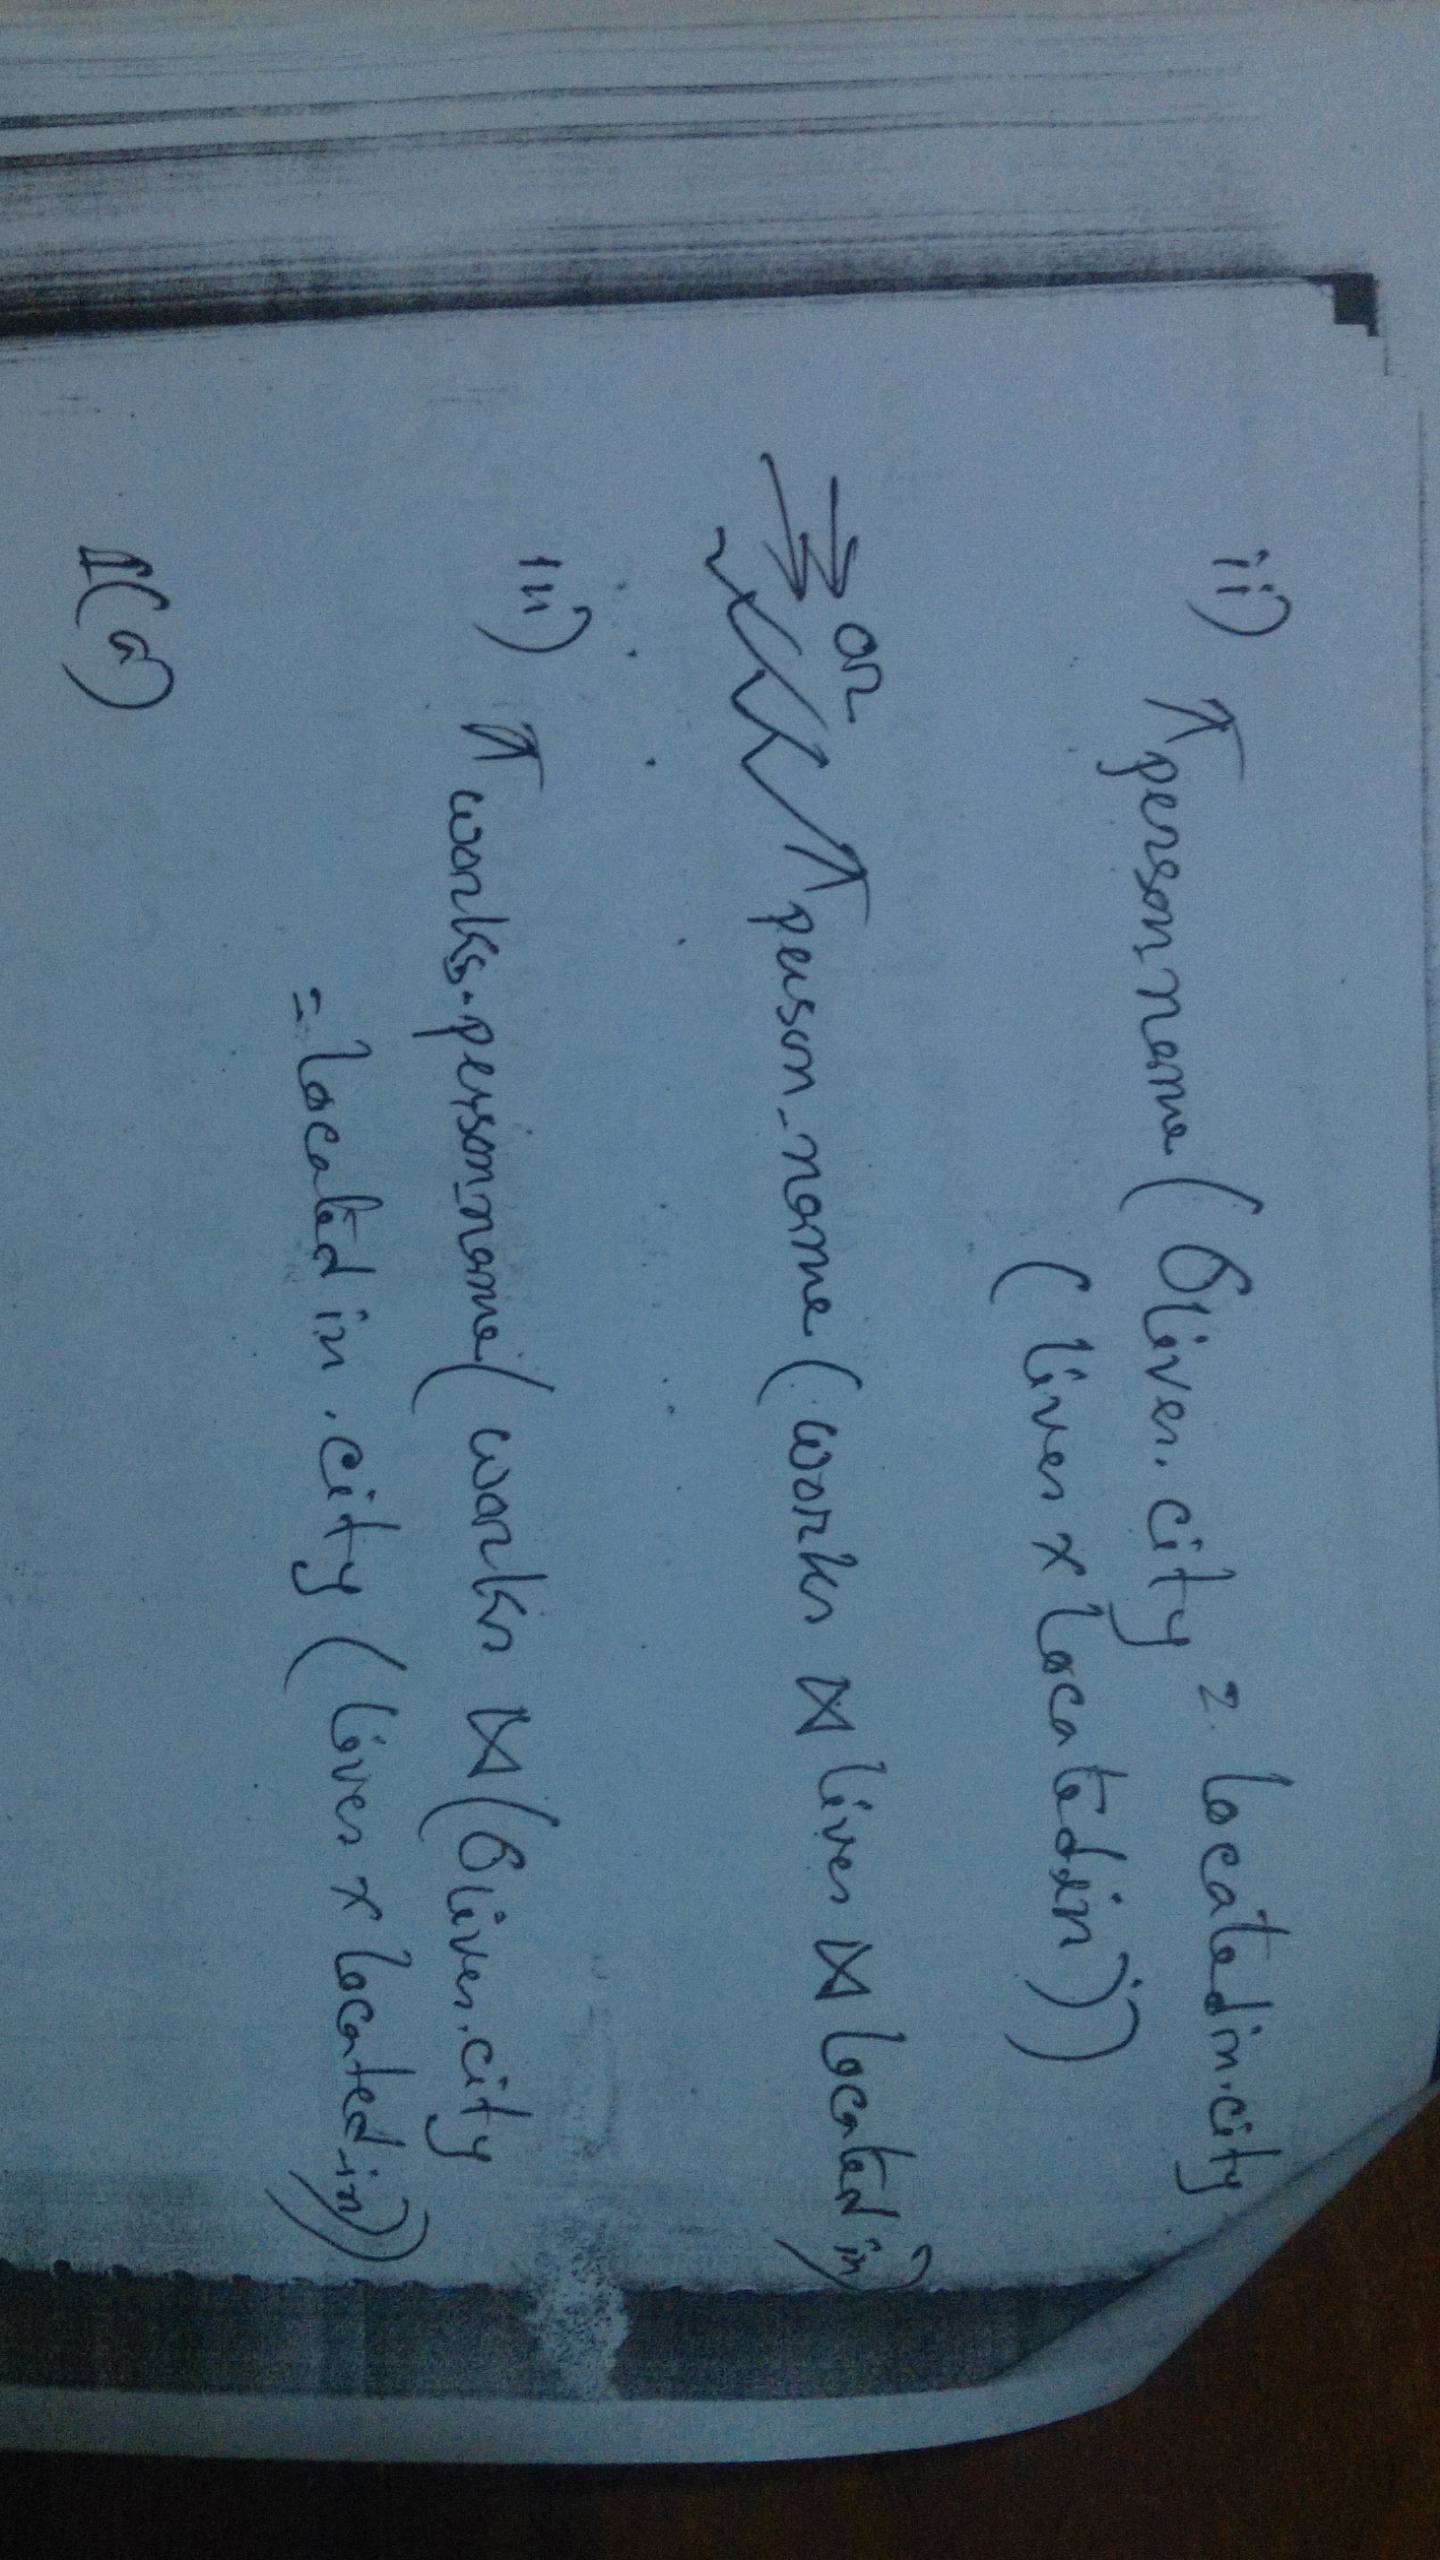 ii) π person_name ( σ lives.city = located in.city
( lives x located_in ))
or π person_name ( works ⋈ lives ⋈ located in )
iii) π works.person_name ( works ⋈ ( σ lives.city
= located in.city ( lives x located_in ))
1(a)